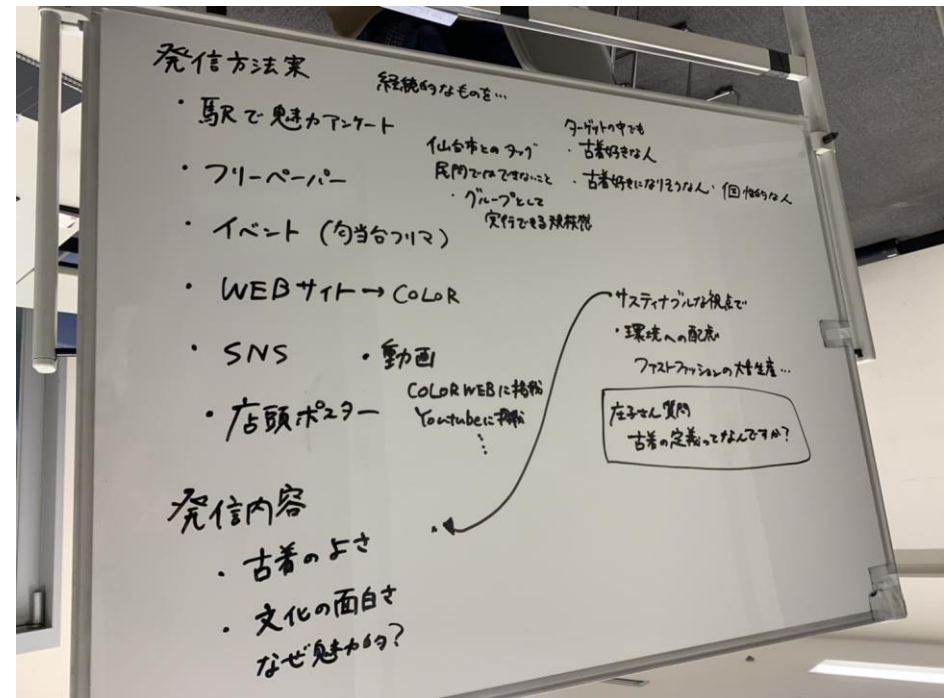 発信方法案
継続的なものを…
・駅で魅力アンケート
・フリーペーパー
・イベント（勾当台フリマ）
・WEBサイト→COLOR
・SNS ・動画
COLOR WEBに掲載
Youtubeに掲載
・店頭ポスター
仙台市とのタッグ
民間ではできないこと
・グループとして
実行できる規模感
ターゲットの中でも
・古着好きな人
・古着好きになりそうな人・個性的な人
サスティナブルな視点で
・環境への配慮
ファストファッションの大量生産…
庄子さん質問
古着の定義ってなんですか？
発信内容
・古着のよさ
・文化の面白さ
なぜ魅力的？